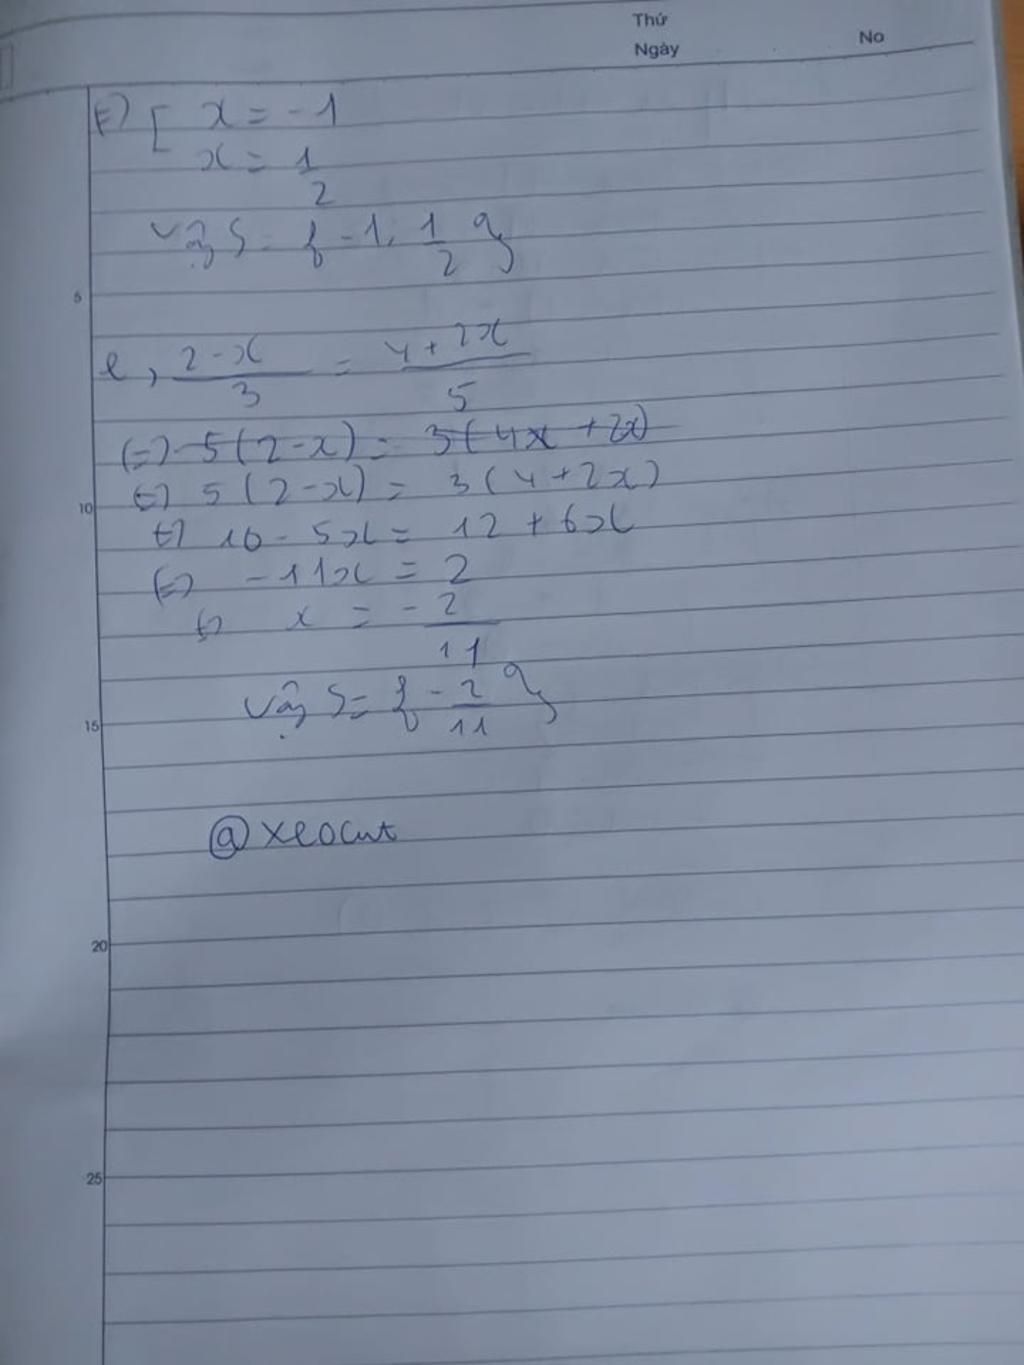 Thứ
Ngày No
<=> [ x = -1
x = 1/2
Vậy S = { -1; 1/2 }
5
e, (2-x)/3 = (4+2x)/5
(=) 5(2-x) = 3(4x+2x)
<=> 5(2-x) = 3(4+2x)
10
<=> 10 - 5x = 12 + 6x
(=) -11x = 2
<=> x = -2/11
Vậy S = { -2/11 }
15
@xeocut
20
25